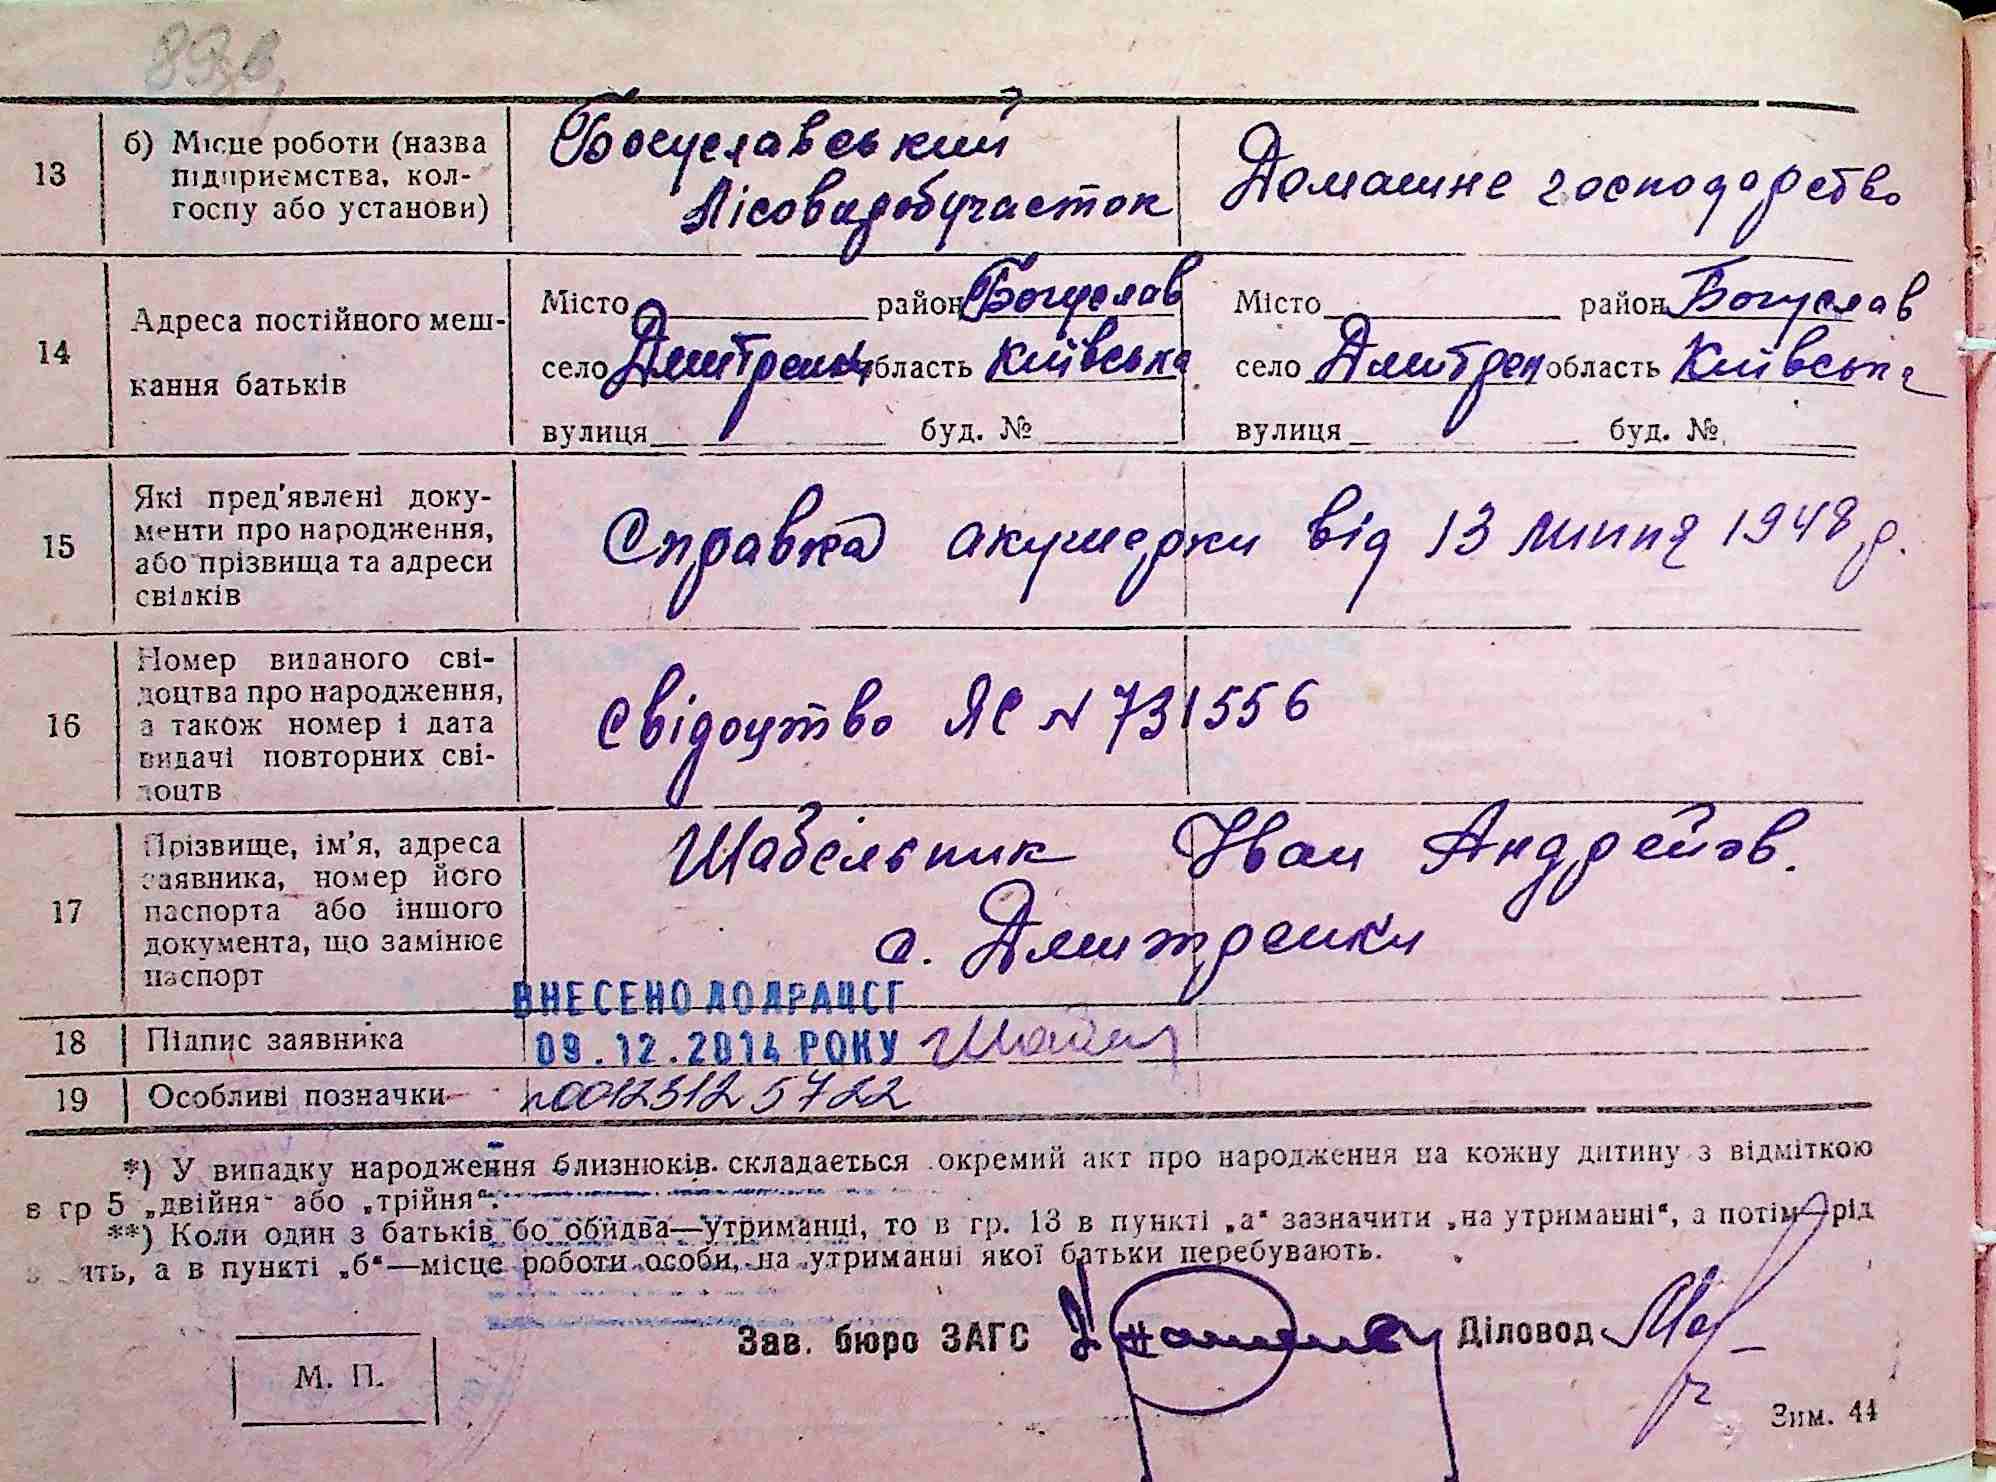 89 в,
13 б) Місце роботи (назва підприємства, колгоспу або установи) Богуславський Лісовидобучасток Домашнє господарство
14 Адреса постійного мешкання батьків
Місто район Богуслав Місто район Богуслав
село Дмитренки область Київська село Дмитрен область Київська
вулиця буд. № вулиця буд. №
15 Які пред'явлені документи про народження, або прізвища та адреси свідків Справка акушерки від 13 липня 1948 р.
16 Номер виданого свідоцтва про народження, а також номер і дата видачі повторних свідоцтв Свідоцтво ЯС № 731556
17 Прізвище, ім'я, адреса заявника, номер його паспорта або іншого документа, що замінює паспорт Шабельник Іван Андрейов.
с. Дмитренки
ВНЕСЕНО ДО ДРАЦСГ
18 Підпис заявника 09.12.2014 РОКУ Шабел
19 Особливі позначки 00123125722
*) У випадку народження близнюків складається окремий акт про народження на кожну дитину з відміткою
в гр 5 „двійня" або „трійня".
**) Коли один з батьків бо обидва—утриманці, то в гр. 13 в пункті „а" зазначити „на утриманні", а потім рід
ять, а в пункті „б"—місце роботи особи, на утриманні якої батьки перебувають.
Зав. бюро ЗАГС Діловод
М. П.
Зим. 44